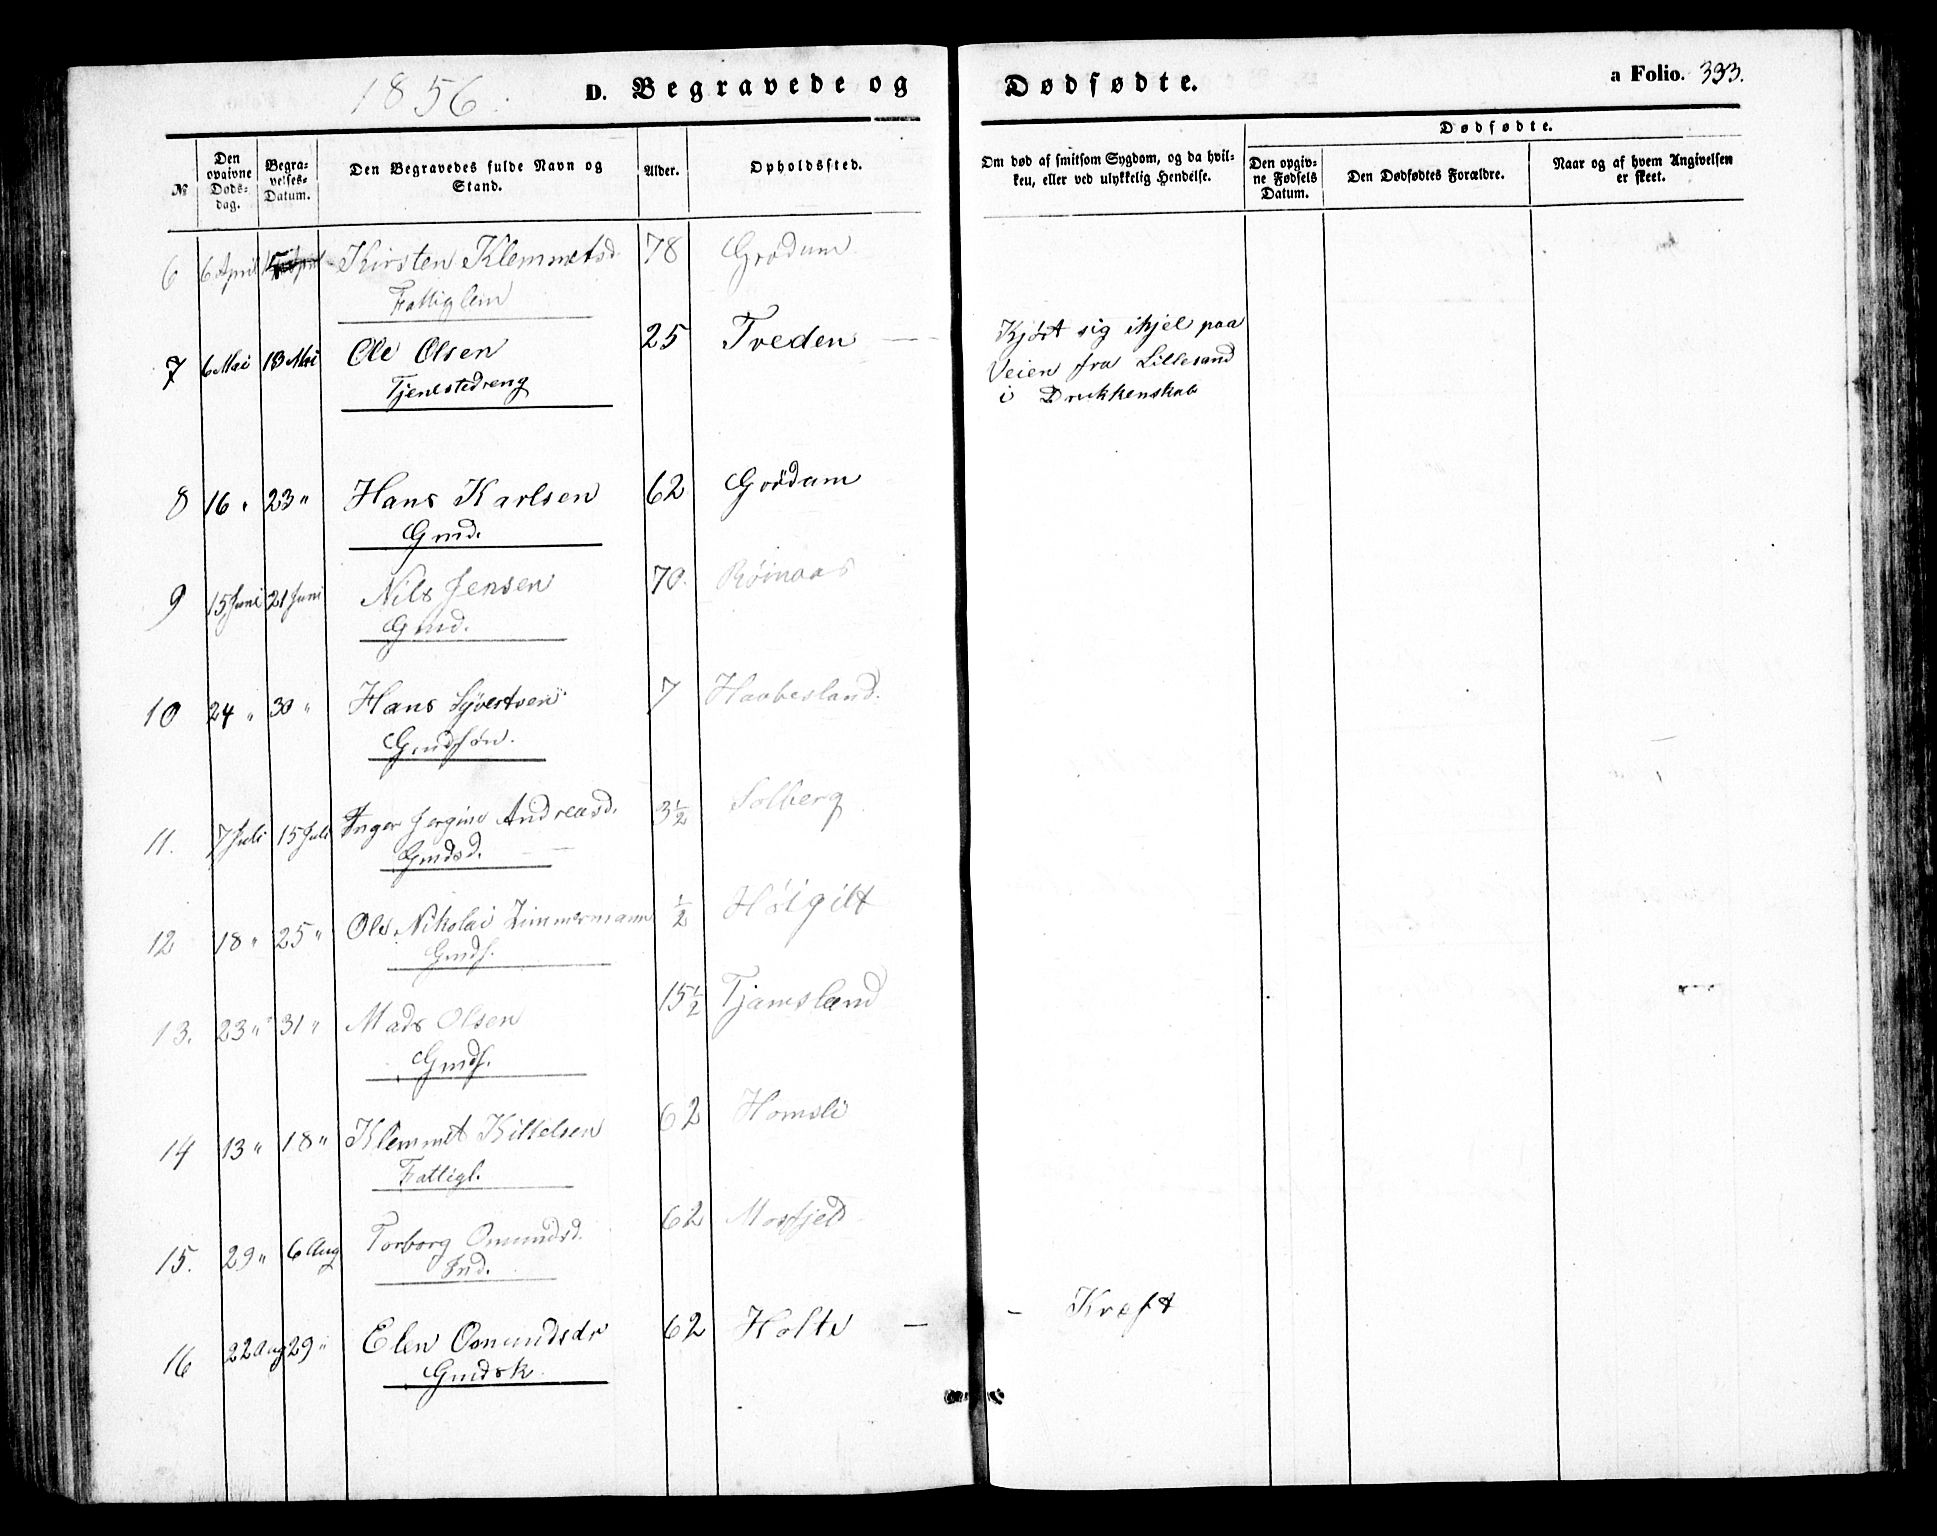 1856.
D. Begravede og Dødfødte.
a Folio. 333.
№
Den opgivne Døds-dag.
Begra-velses-Datum.
Den Begravedes fulde Navn og Stand.
Alder.
Opholdssted.
Om død af smitsom Sygdom, og da hvil-ken, eller ved ulykkelig Hendelse.
Dødfødte.
Den opgiv-ne Fødsels Datum.
Den Dødfødtes Forældre.
Naar og af hvem Angivelsen er skeet.
6 6 April Kirsten Klemmetsd. 78 Grødum
Fattiglem
7 6 Mai 13 Mai Ole Olsen 25 Tveden — Kjørt sig ihjel paa
Tjenstedreng Veien fra Lillesand
i Drukkenskab
8 16 " 23 " Hans Karlsen 62 Grødum
Gmd.
9 15 Juni 21 Juni Nils Jensen 70. Røinaas
Gmd.
10 24 " 30 " Hans Syvertsen 7 Haabesland.
Gmdsøn.
11. 7 Juli 15 Juli Inger Jergine Andreasd. 3½ Solberg
Gmdsd.
12 18 " 25 " Ole Nikolai Zimmermann ½ Høigilt
Gmds.
13. 23 " 31 " Mads Olsen 15½ Tjamsland
Gmds.
14 13 " 18 " Klemmet Kittelsen 62 Homsli
Fattigl.
15. 29 " 6 Aug Torborg Omundsd. 62 Mosfjeld
Ind.
16 22 Aug 29 " Elen Omundsdr 62 Holte — - Kræft
Gmdsk.